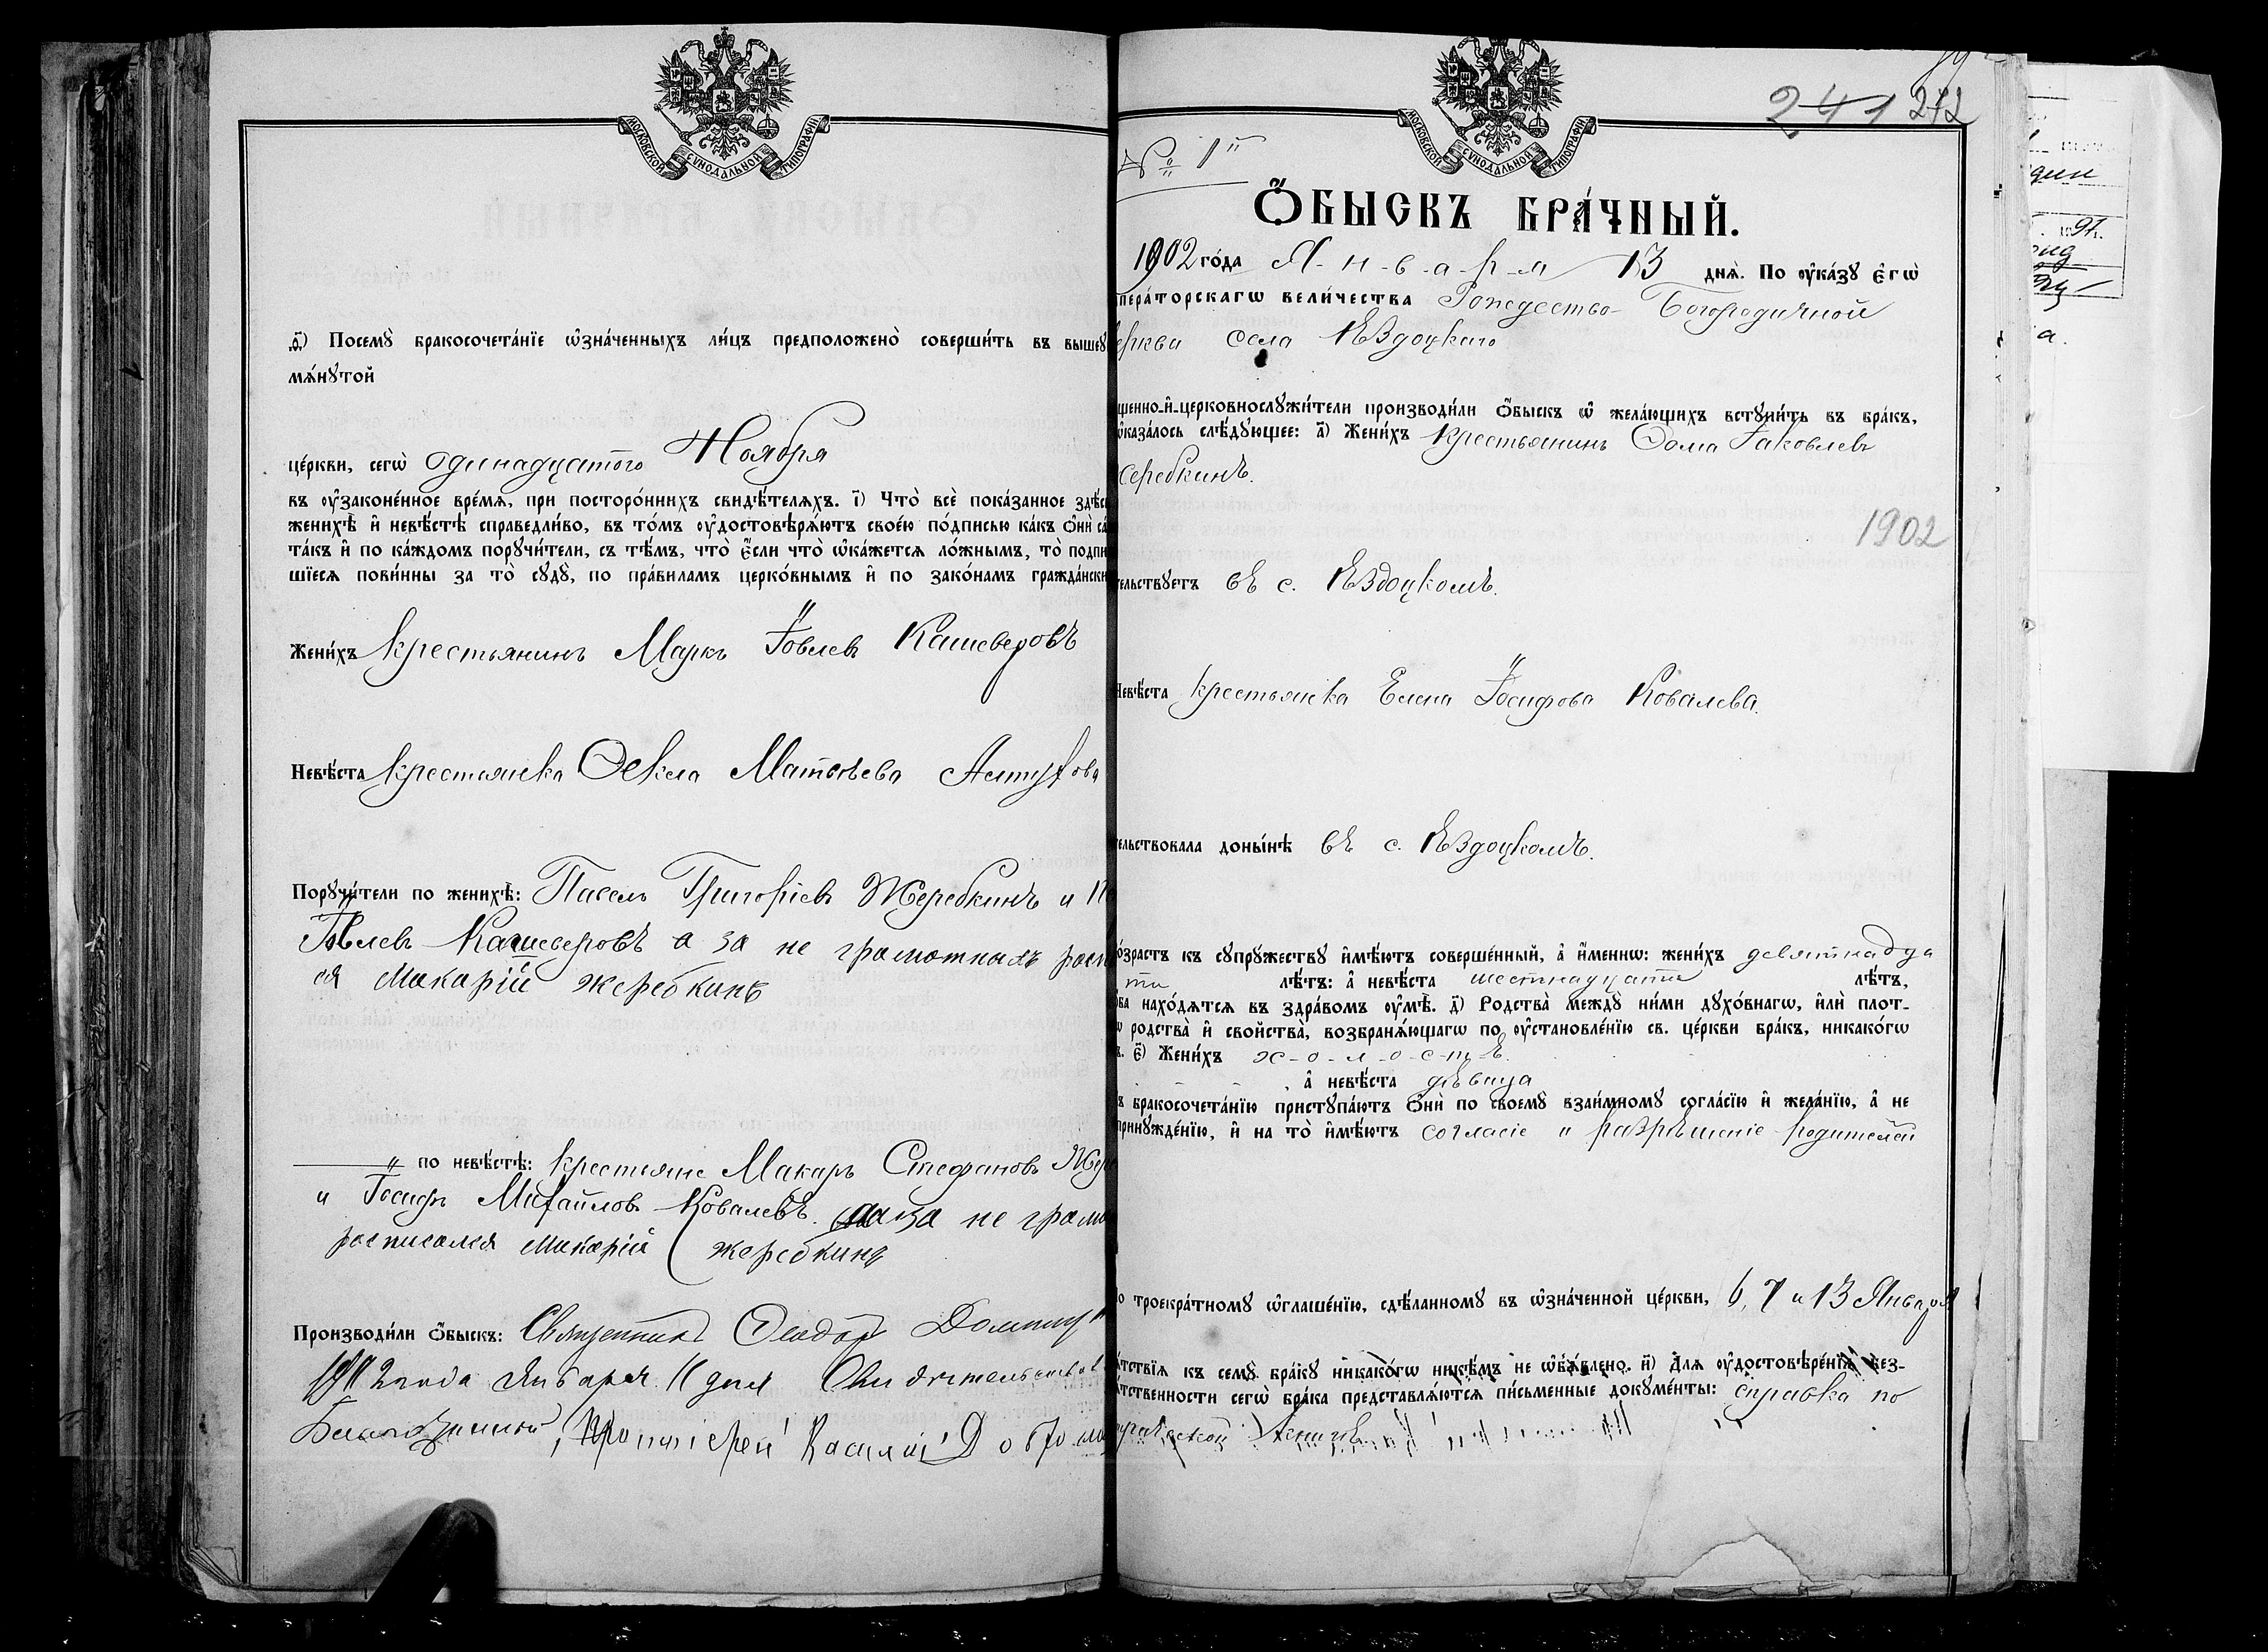 МОСКОВСКОЙ СѴНОДАЛЬНОЙ ТИПОГРАФІИ
ѳ҃) Посемꙋ̀ бракосочета́нїе ѡ҆зна́ченныхъ ли́цъ предположено̀ соверши́ть въ вышеꙋ
мѧ́нꙋтой
це́ркви, сегѡ̀ одинадцатого Ноября
въ ᲂу҆законе́нное вре́мѧ, при посторо́ннихъ свидѣ́телѧхъ. і҃) Что̀ всѐ пока́занное здѣ́сь
женихѣ̀ и҆ невѣ́стѣ справедли́во, въ то́мъ ᲂу҆достовѣрѧ́ютъ свое́ю по́дписью ка́къ ѻ҆нѝ са́
та́къ и҆ по ка́ждомъ порꙋчи́тели, съ тѣ́мъ, что̀ є҆́сли что̀ ѡ҆ка́жетсѧ ло́жнымъ, то̀ подпи
шїесѧ пови́нны за то̀ сꙋдꙋ̀, по пра́виламъ церко́внымъ и҆ по зако́намъ гражда́нски
Жени́хъ Крестьянинъ Маркъ Іовлевъ Кашеверовъ
Невѣ́ста Крестьянка Ѳекла Матвѣева Алтухова
Порꙋчи́тели по женихѣ̀: Павелъ Григоріевъ Жеребкинъ и
Іовлевъ Кашеверовъ а за не грамотныхъ расп
ся Макарій жеребкинъ
〃 по невѣ́стѣ: крестьяне Макаръ Стефановъ Жере
и Іосифъ Михайловъ Ковалевъ. а за не грамо
росписался Макарій жеребкинъ
Производи́ли ѻ҆́быскъ: Священникъ Ѳеодоръ
1902 года Января 11 дня Свидѣтельствовал
Благочинный, Протоіерей Василій
241 242
МОСКОВСКОЙ СѴНОДАЛЬНОЙ ТИПОГРАФІИ
№ 1й
Ѻ҆́БЫСКЪ БРА́ЧНЫЙ.
1902 го́да Января 13 днѧ̀. По ᲂу҆ка́зꙋ є҆гѡ̀
ператорскагѡ вели́чества Рождество-Богородичной
еркви села Ѣздоцкаго
щенно-и҆-церковнослꙋжи́тели производи́ли ѻ҆́быскъ ѡ҆ жела́ющихъ встꙋпи́ть въ бра́къ,
ѡ҆каза́лось слѣ́дꙋющее: а҃) Жени́хъ крестьянинъ Ѳома Іаковлевъ
Жеребкинъ.
1902
тельствꙋетъ въ с. Ѣздоцкомъ.
Невѣ́ста крестьянка Елена Іосифова Ковалева.
тельствовала доны́нѣ въ с. Ѣздоцкомъ.
о́зрастъ къ сꙋпрꙋ́жествꙋ и҆мѣ́ютъ соверше́нный, а҆ и҆́меннѡ: жени́хъ девятнадца
ти лѣ́тъ: а҆ невѣ́ста шестнадцати лѣ́тъ,
ба нахо́дѧтсѧ въ здра́вомъ ᲂу҆мѣ̀. д҃) Родства̀ междꙋ̀ ни́ми дꙋхо́внагѡ, и҆лѝ плот-
ѡ родства̀ и҆ свойства̀, возбранѧ́ющагѡ по ᲂу҆становле́нїю св. це́ркви бра́къ, никако́гѡ
ъ. є҃) Жени́хъ холостъ.
а҆ невѣ́ста дѣвица
ъ бракосочета́нїю пристꙋпа́ютъ ѻ҆нѝ по своемꙋ̀ взаи́мномꙋ согла́сїю и҆ жела́нїю, а҆ не
принꙋжде́нїю, и҆ на то̀ и҆мѣ́ютъ согласіе и разрѣшеніе родителей
о троекра́тномꙋ ѡ҆глаше́нїю, сдѣ́ланномꙋ въ ѡ҆зна́ченной це́ркви, 6, 7 и 13 Января
ѧ́тствїѧ къ семꙋ̀ бра́кꙋ никако́гѡ никѣ́мъ не ѡ҆б̾ѧ́влено. и҃) Для ᲂу҆достовѣре́нїѧ без-
ѧ́тственности сегѡ̀ бра́ка представлѧ́ютсѧ пи́сьменные докꙋме́нты: справка по